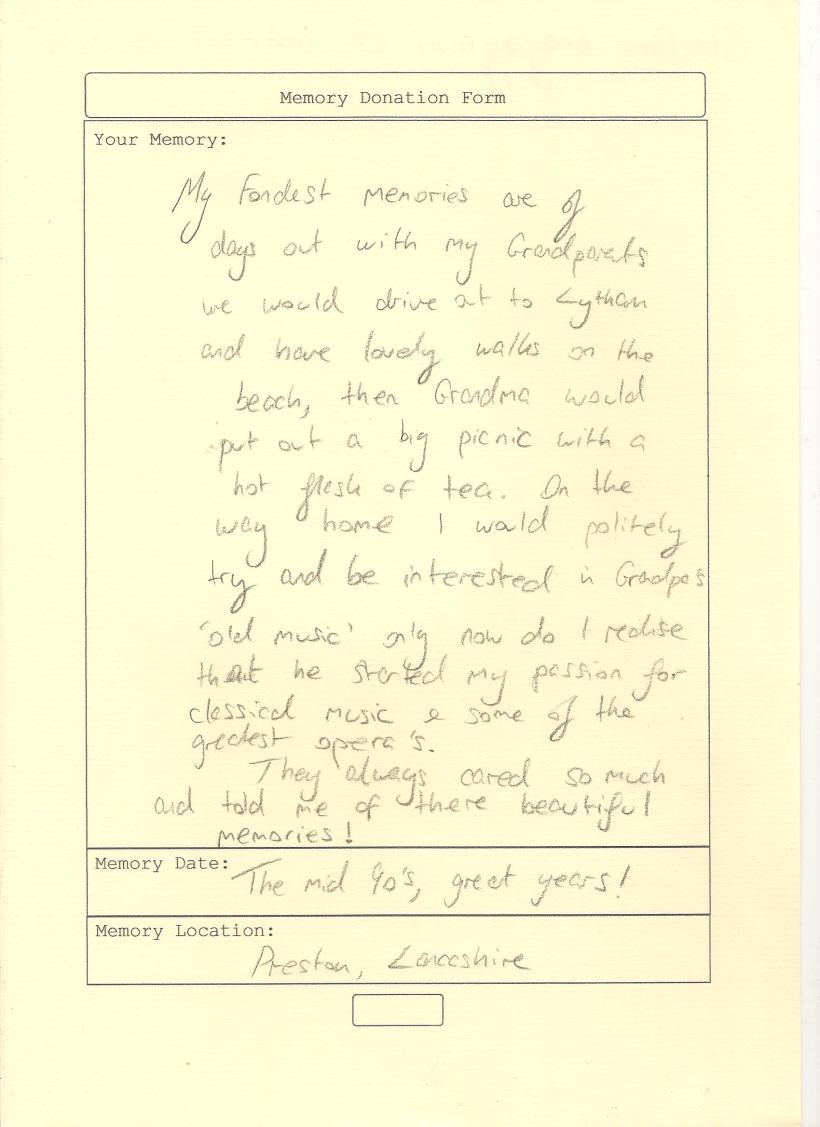 Memory Donation Form
Your Memory:
My Fondest memories are of
days out with my Grandparents
we would drive out to Lytham
and have lovely walks on the
beach, then Grandma would
put out a big picnic with a
hot flask of tea. On the
way home I would politely
try and be interested in Grandpa's
'old music' only now do I realise
that he started my passion for
classical music & some of the
greatest opera's.
They always cared so much
and told me of there beautiful
memories!
Memory Date:
The mid 90's, great years!
Memory Location:
Preston, Lancashire